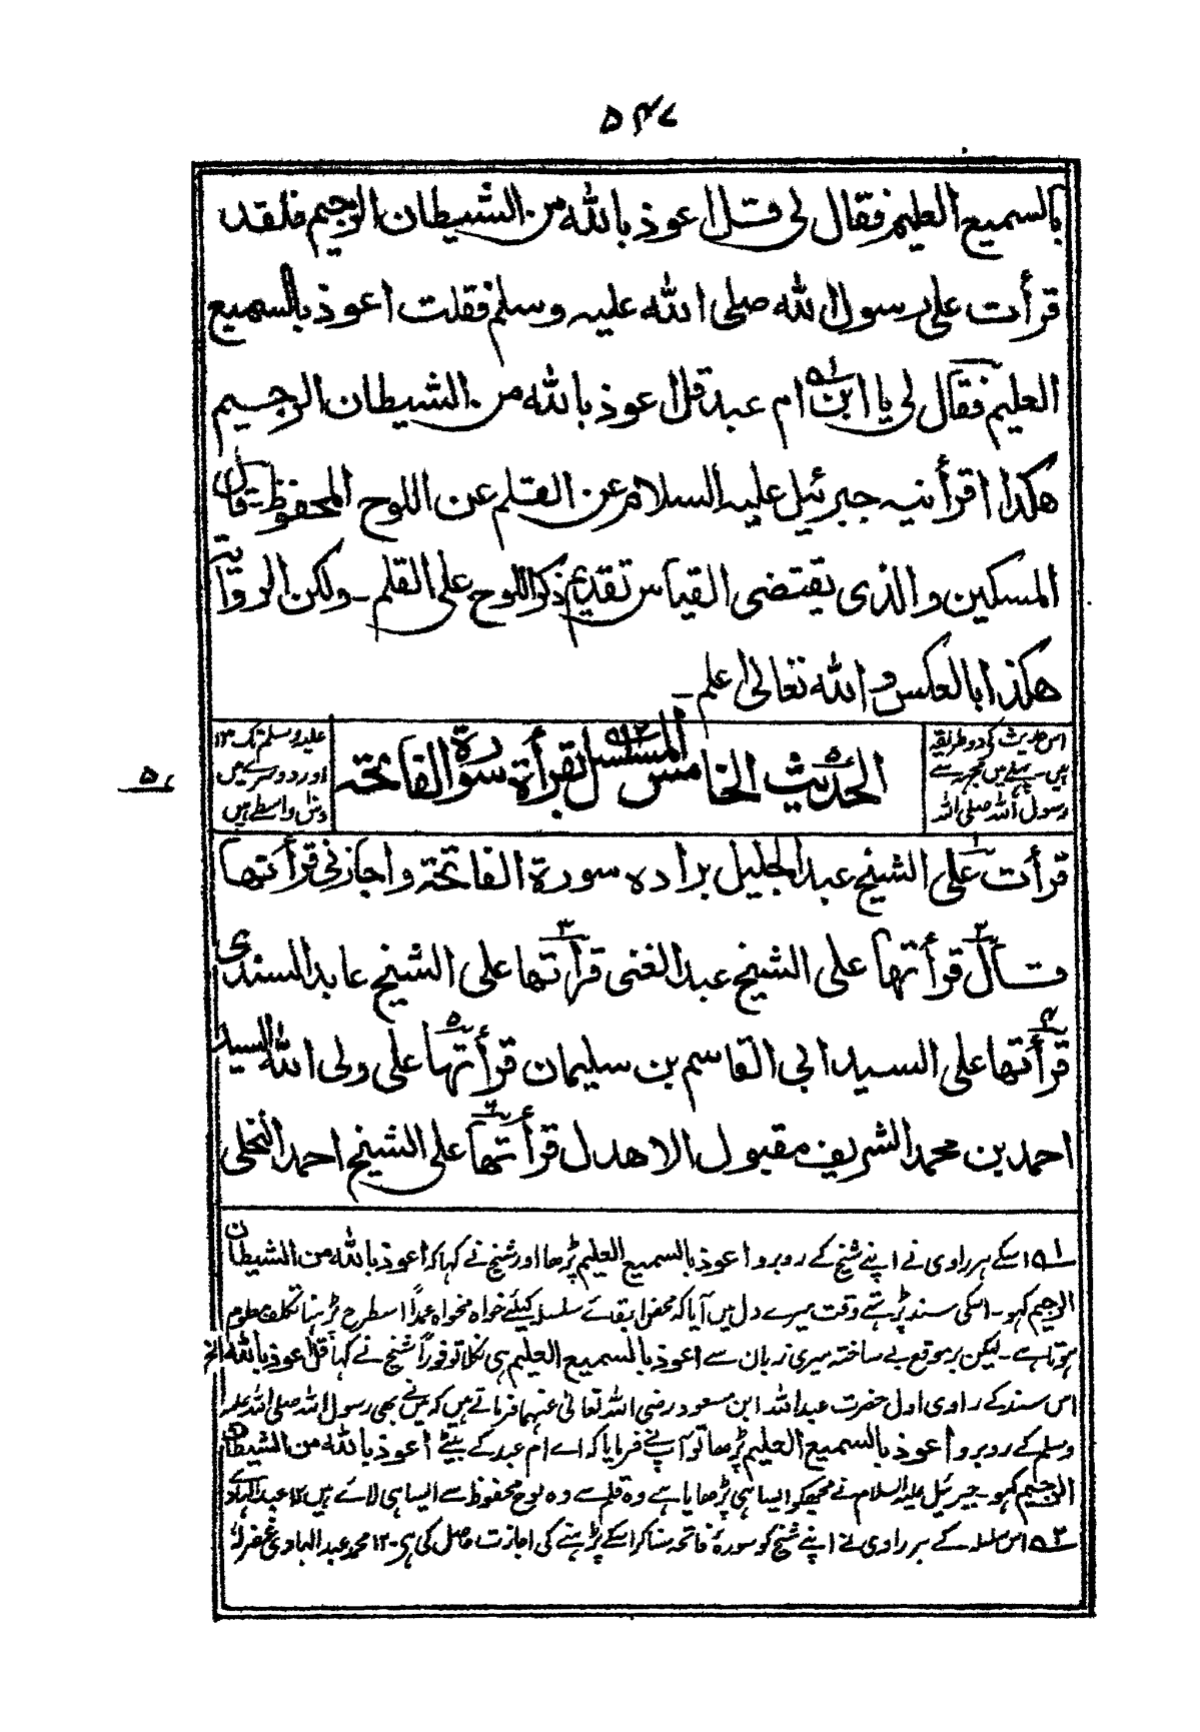 ۵۴۷
بالسميع العليم فقال لى قل اعوذ بالله من الشيطان الرجيم فلقد
قرأت على رسول الله صلى الله عليه وسلم فقلت اعوذ بالسميع
العليم فقال لى يا ابن ام عبد قل اعوذ بالله من الشيطان الرجيم
هكذا اقرأنيه جبرئيل عليه السلام عن القلم عن اللوح المحفوظ ـ قال
المسكين والذى يقتضى القياس تقديم ذكر اللوح على القلم ـ ولكن الرواية
هكذا بالعكس والله تعالى اعلم ـ
اس حدیث کی دو طریقہ
ہیں پہلے میں مجھ سے
رسول اللہ صلی اللہ
الحديث الخامس المسلسل بقرأة سورة الفاتحة
علیہ وسلم تک ۱۳
اور دوسرے میں
دس واسطے ہیں
۵
قرأت على الشيخ عبد الجليل براده سورة الفاتحة واجازنى قرأتها
قال قرأتها على الشيخ عبد الغنى قرأتها على الشيخ عابد السندى
قرأتها على السيد ابى القاسم بن سليمان قرأتها على ولى الله السيد
احمد بن محمد الشريف مقبول الاهدل قرأتها على الشيخ احمد النخلى
۱ اسکے ہر راوی نے اپنے شیخ کے روبرو اعوذ بالسمیع العلیم پڑھا اور شیخ نے کہا کہ اعوذ باللہ من الشیطان
الرجیم کہو ـ اسکی سند پڑہتے وقت میرے دل میں آیا کہ محض ابقائے سلسلہ کیلئے خواہ مخواہ عمداً اسطرح پڑہنا تکلف معلوم
ہوتا ہے ـ لیکن بر موقع بے ساختہ میری زبان سے اعوذ بالسمیع العلیم ہی نکلا تو فوراً شیخ نے کہا قل اعوذ باللہ الخ
اس سند کے راوی اول حضرت عبد اللہ ابن مسعود رضی اللہ تعالیٰ عنہما فرماتے ہیں کہ میں نے بھی رسول اللہ صلی اللہ علیہ
وسلم کے روبرو اعوذ بالسمیع العلیم پڑھا تو آپنے فرمایا کہ اے ام عبد کے بیٹے اعوذ باللہ من الشیطان
الرجیم کہو ـ جبرئیل علیہ السلام نے مجھکو ایسا ہی پڑھایا ہے وہ قلم سے وہ لوح محفوظ سے ایسا ہی لائے ہیں ۱۲ عبد الہادی
۲ اس سلسلہ کے ہر راوی نے اپنے شیخ کو سورۂ فاتحہ سنا کر اسکے پڑہنے کی اجازت حاصل کی ہی ۱۲ محمد عبد الہادی غفرلہ